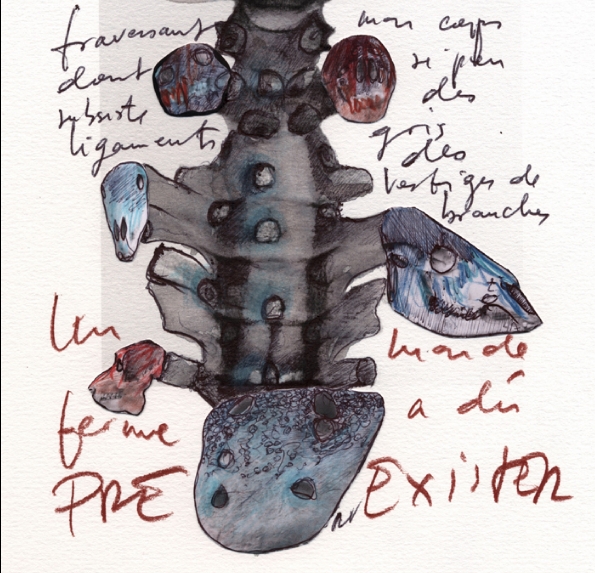 traversant
dont
subsiste
ligaments
mon corps
si peu
des
gris
des
vestiges de
branches
Un
monde
ferme
a dû
PRE EXISTER